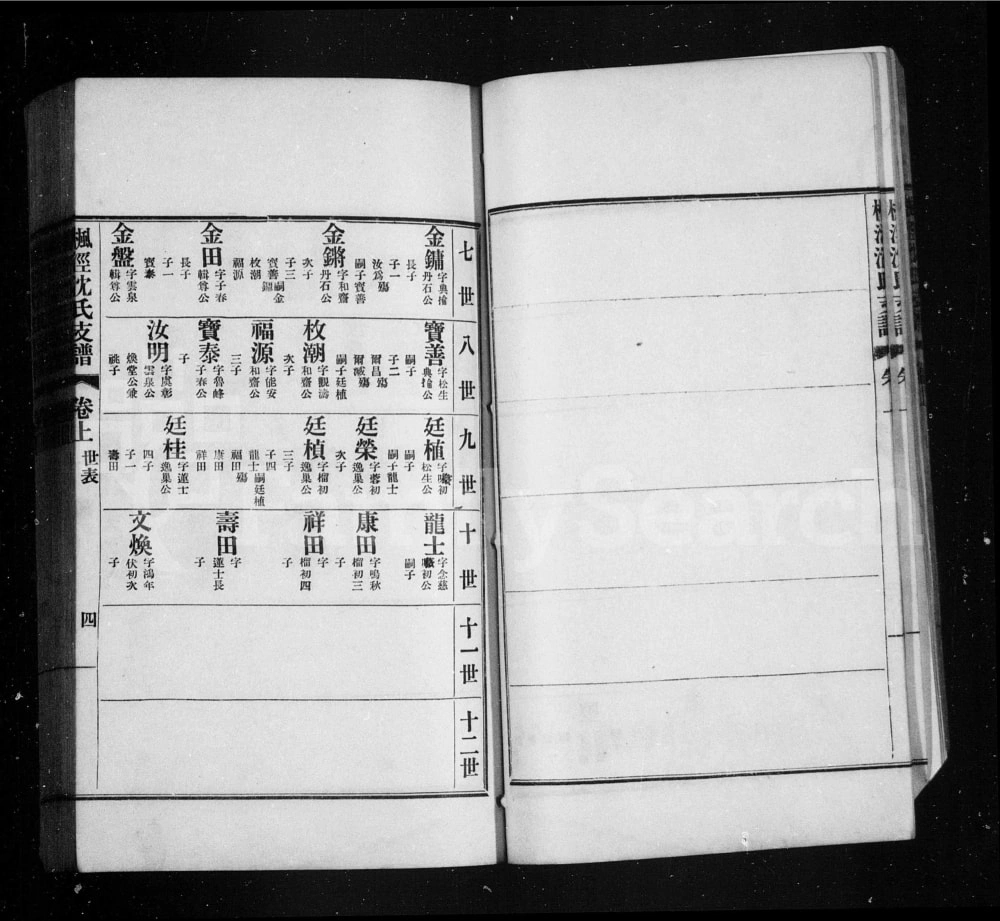 七世
金鏞
字典掄
丹石公
長子
子一
汝爲殤
嗣子寶善
金鏘
字和齋
丹石公
次子
子三
寶善嗣金鏞
枚潮
福源
金田
字子春
輯尊公
長子
子一
寶泰
金盤
字雲泉
輯尊公
八世
寶善
字松生
典掄公
嗣子
子二
爾昌殤
爾臧殤
嗣子廷植
枚潮
字觀濤
和齋公
次子
福源
字能安
和齋公
三子
寶泰
字魯峰
子春公
子
汝明
字虞彰
雲泉公
煥堂公兼
祧子
九世
廷植
松生公
嗣子
嗣子龍士
廷榮
字蓉初
逸巢公
次子
廷楨
字榴初
逸巢公
三子
子四
龍士嗣廷植
福田殤
康田
祥田
廷桂
字蓮士
逸巢公
四子
子一
壽田
十世
龍士
字念慈
嗣子
康田
字鳴秋
榴初三
子
祥田
字
榴初四
子
壽田
字
蓮士長
子
文煥
字鴻年
伏初次
子
十一世
十二世
楓涇沈氏支譜
卷上
世表
四